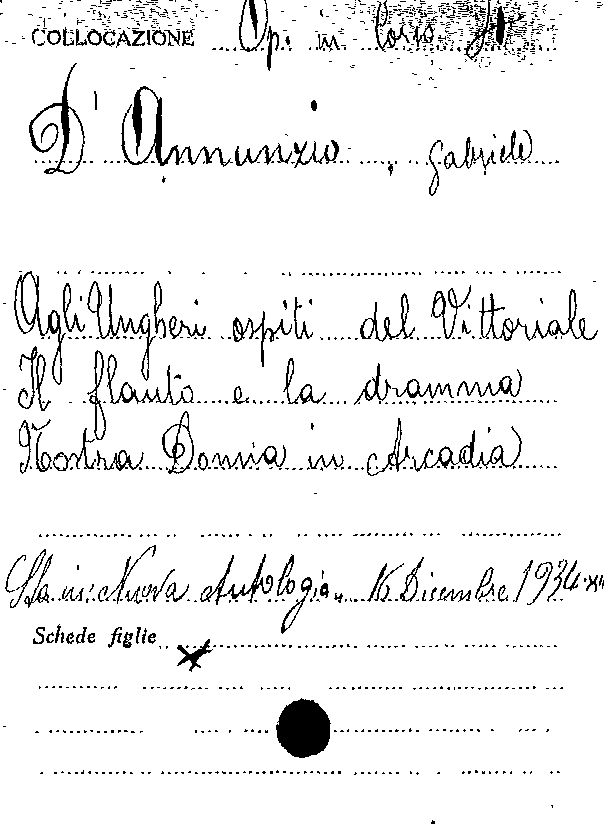 COLLOCAZIONE Op. in Corso
D'Annunzio, Gabriele
Agli Ungheri ospiti del Vittoriale
Il flauto e la dramma
Nostra Donna in Arcadia
Sta in: Nuova Antologia, 16 Dicembre 1934
Schede figlie